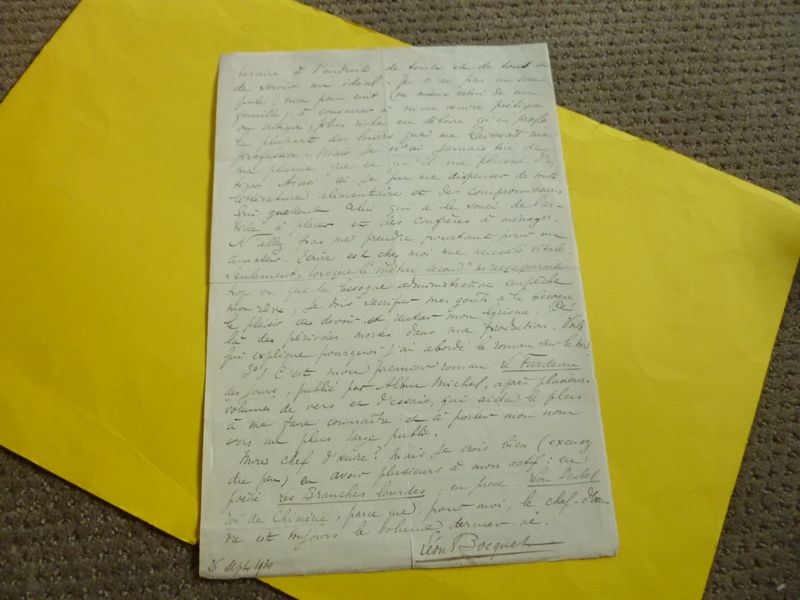 téraire à l'endroit de toute et de tous et
de servir un idéal. Je n'ai pas eu
mon pain cuit (ou mieux celui de ma
famille) à consacrer à mon œuvre poétique
ou critique, plus riche en déboire qu'en profit
la plupart des loisirs que me laissait ma
profession. Mais je n'ai jamais tiré de
ma plume que ce qu'il me plaisait d'en
tirer. Ainsi ai-je pu me dispenser de toute
littérature alimentaire et des compromissions
qui guettent celui qui a le souci de l'ar-
ticle à placer et des confrères à ménager.
N'allez pas me prendre pourtant pour un
amateur. Ecrire est chez moi une nécessité vitale.
Seulement, lorsque le métier second
trop ou que la besogne administrative empêche
mon rêve, je dois sacrifier mes goûts à la besogne
le plaisir au devoir et mon lyrisme. De
là des périodes mortes dans ma production. Voilà
qui explique pourquoi j'ai abordé le roman sur le tard
3o/ C'est mon premier roman le Fardeau
des jours, publié par Albin Michel, après plusieurs
volumes de vers et d'essais, qui aida le plus
à me faire connaître et à porter mon nom
vers un plus large public.
Mon chef d'œuvre? Mais je crois bien (excusez
du peu) en avoir plusieurs à mon actif: en
poésie les Branches lourdes; en prose Léon Deubel
roi de Chimérie, parce que, pour moi, le chef-d'œu-
vre est toujours le volume dernier né.
Léon Bocquet
26 sept 1930